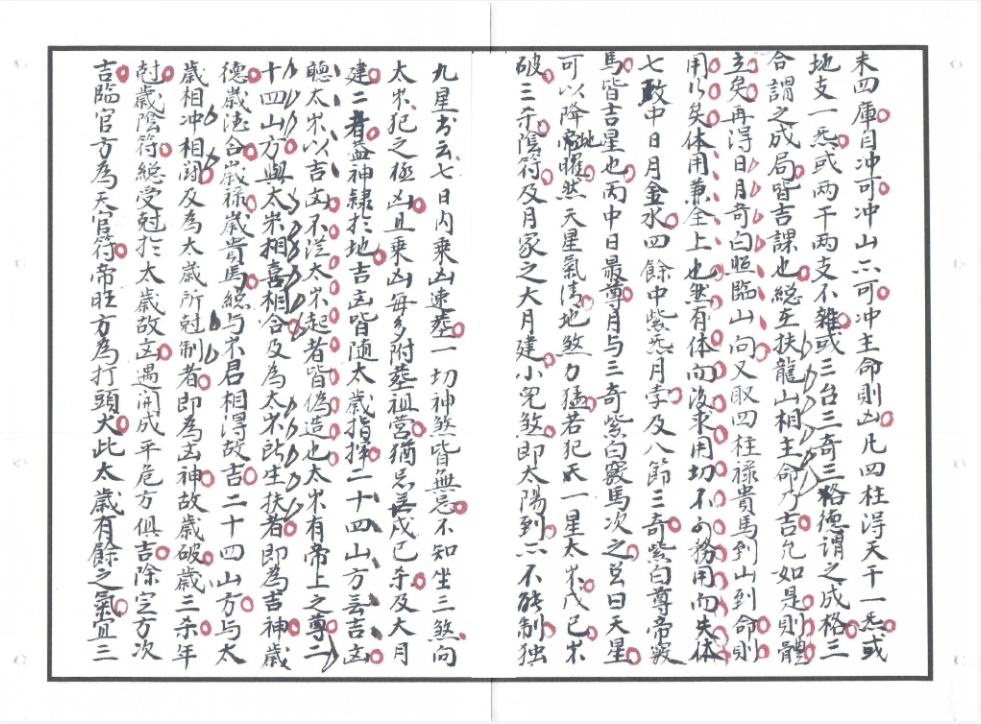 未四庫自冲可冲山亦可冲主命則凶凡四柱得天干一炁或
地支一炁或两干两支不雜或三台三奇三格德謂之成格三
合謂之成局皆吉課也総在扶龍山相主命乃吉凡如是則體
立矣再得日月奇白照臨山向又取四柱禄貴馬到山到命則
用以矣体用兼全上也然有体而後求用切不可務用而失体
七政中日月金水四餘中紫炁月孛及八節三奇紫白尊帝竅
馬皆吉星也丙中日最尊月与三奇紫白竅馬次之总曰天星
可以降地曜然天星氣清地煞力猛若犯天一星太岁戊己岁
破三杀陰符及月家之大月建小児煞即太陽到亦不能制独
九星书云七日内乘凶速塟一切神煞皆無忌不知坐三煞向
太岁犯之極凶且乘凶每多附塟祖营猶忌 戊己杀及大月
建二者盖神隷於地吉凶皆随太歲指揮二十四山方 吉凶
聴太岁以吉凶不從太岁起者皆偽造也太岁有帝上之尊二
十四山方與太岁相喜相合及為太岁所生扶者即為吉神歲
德歲德合歲禄歲貴馬総与岁君相得故吉二十四山方与太
歲相冲相闘及為太歲所尅制者即為凶神故歲破歲三杀年
尅歲陰符総受尅於太歲故凶遇開成平危方俱吉除定方次
吉臨官方為天官符帝旺方為打頭火此太歲有餘之氣宜三